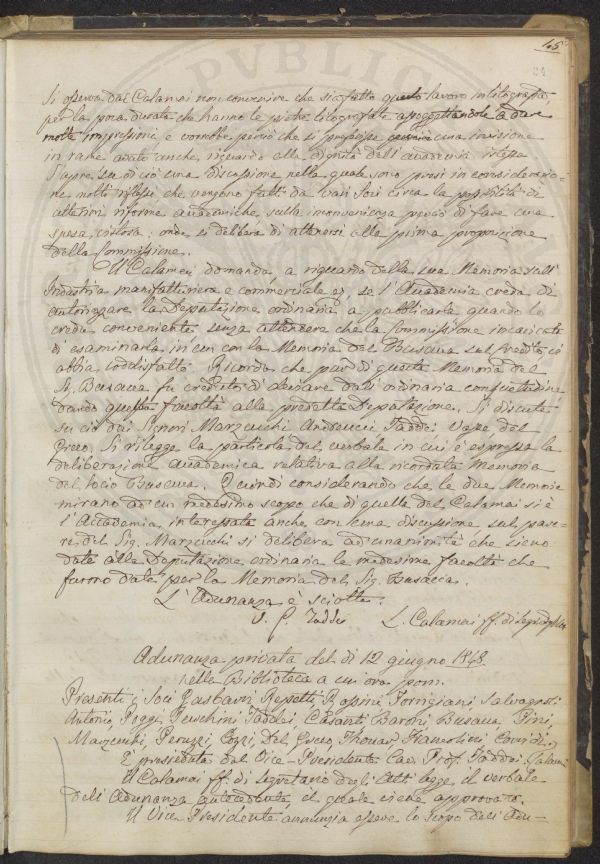 45
Si osserva dal Calamai non convenire che sia fatto questo lavoro in litografia,
per la poca durata che hanno le pietre litografate assoggettandole a dare
molte impressioni, e vorrebbe perciò che si proponesse una incisione
in rame avuto anche riguardo alla dignità dell'Accademia istessa
S'apre su di ciò una discussione nella quale sono presi in considerazio-
ne molti riflessi che vengono fatti da vari Soci circa la possibilità di
ulteriori riforme accademiche, sulla inconvenienza perciò di fare una
spesa vistosa; onde si delibera di attenersi alla prima proposizione
della Commissione.
Il Calamai domanda, a riguardo della sua Memoria sull'
Industria manifatturiera e commerciale, se l'Accademia creda di
autorizzare la Deputazione ordinaria a pubblicarla quando lo
creda conveniente senza attendere che la Commissione incaricata
di esaminarla in un con la Memoria del Busacca sul credito ciò
abbia soddisfatto. Ricorda che per di questa Memoria del
S. Busacca fu creduto di deviare dall'ordinaria consuetudine
dando questa facoltà alla predetta Deputazione. Si discute
su ciò dai Signori Marzucchi Andreucci Taddei del
Greco. Si rilegge la particola del verbale in cui è espressa la
deliberazione Accademica relativa alla ricordata Memoria
del Socio Busacca. Quindi considerando che le due Memorie
mirano ad un medesimo scopo che di quella del Calamai si è
l'Accademia interessata anche con una discussione sul pare-
re del Sig. Marzucchi si delibera ad unanimità che sieno
date alla Deputazione ordinaria le medesime facoltà che
furono date per la Memoria del Sig. Busacca.
L'Adunanza è sciolta.
V. P. Taddei L. Calamai ff. di Segr. degli Atti
Adunanza privata del dì 12 giugno 1848
nella Biblioteca a un'ora pom.
Presenti i Soci Gasbarri Repetti Rossini Torrigiani, Salvagnoli
Antonio, Poggi, Taddei Ridanti Baroni Busacca Pini,
Marzucchi, Peruzzi Cozzi, Del Greco, Thouar Franceschini Corridi, Calamai
È presieduta dal Vice-Presidente Cav. Prof. Taddei
Il Calamai ff. di Segretario degli Atti legge il verbale
dell'Adunanza antecedente il quale viene approvato.
Il Vice Presidente annunzia essere lo scopo dell'Adu-